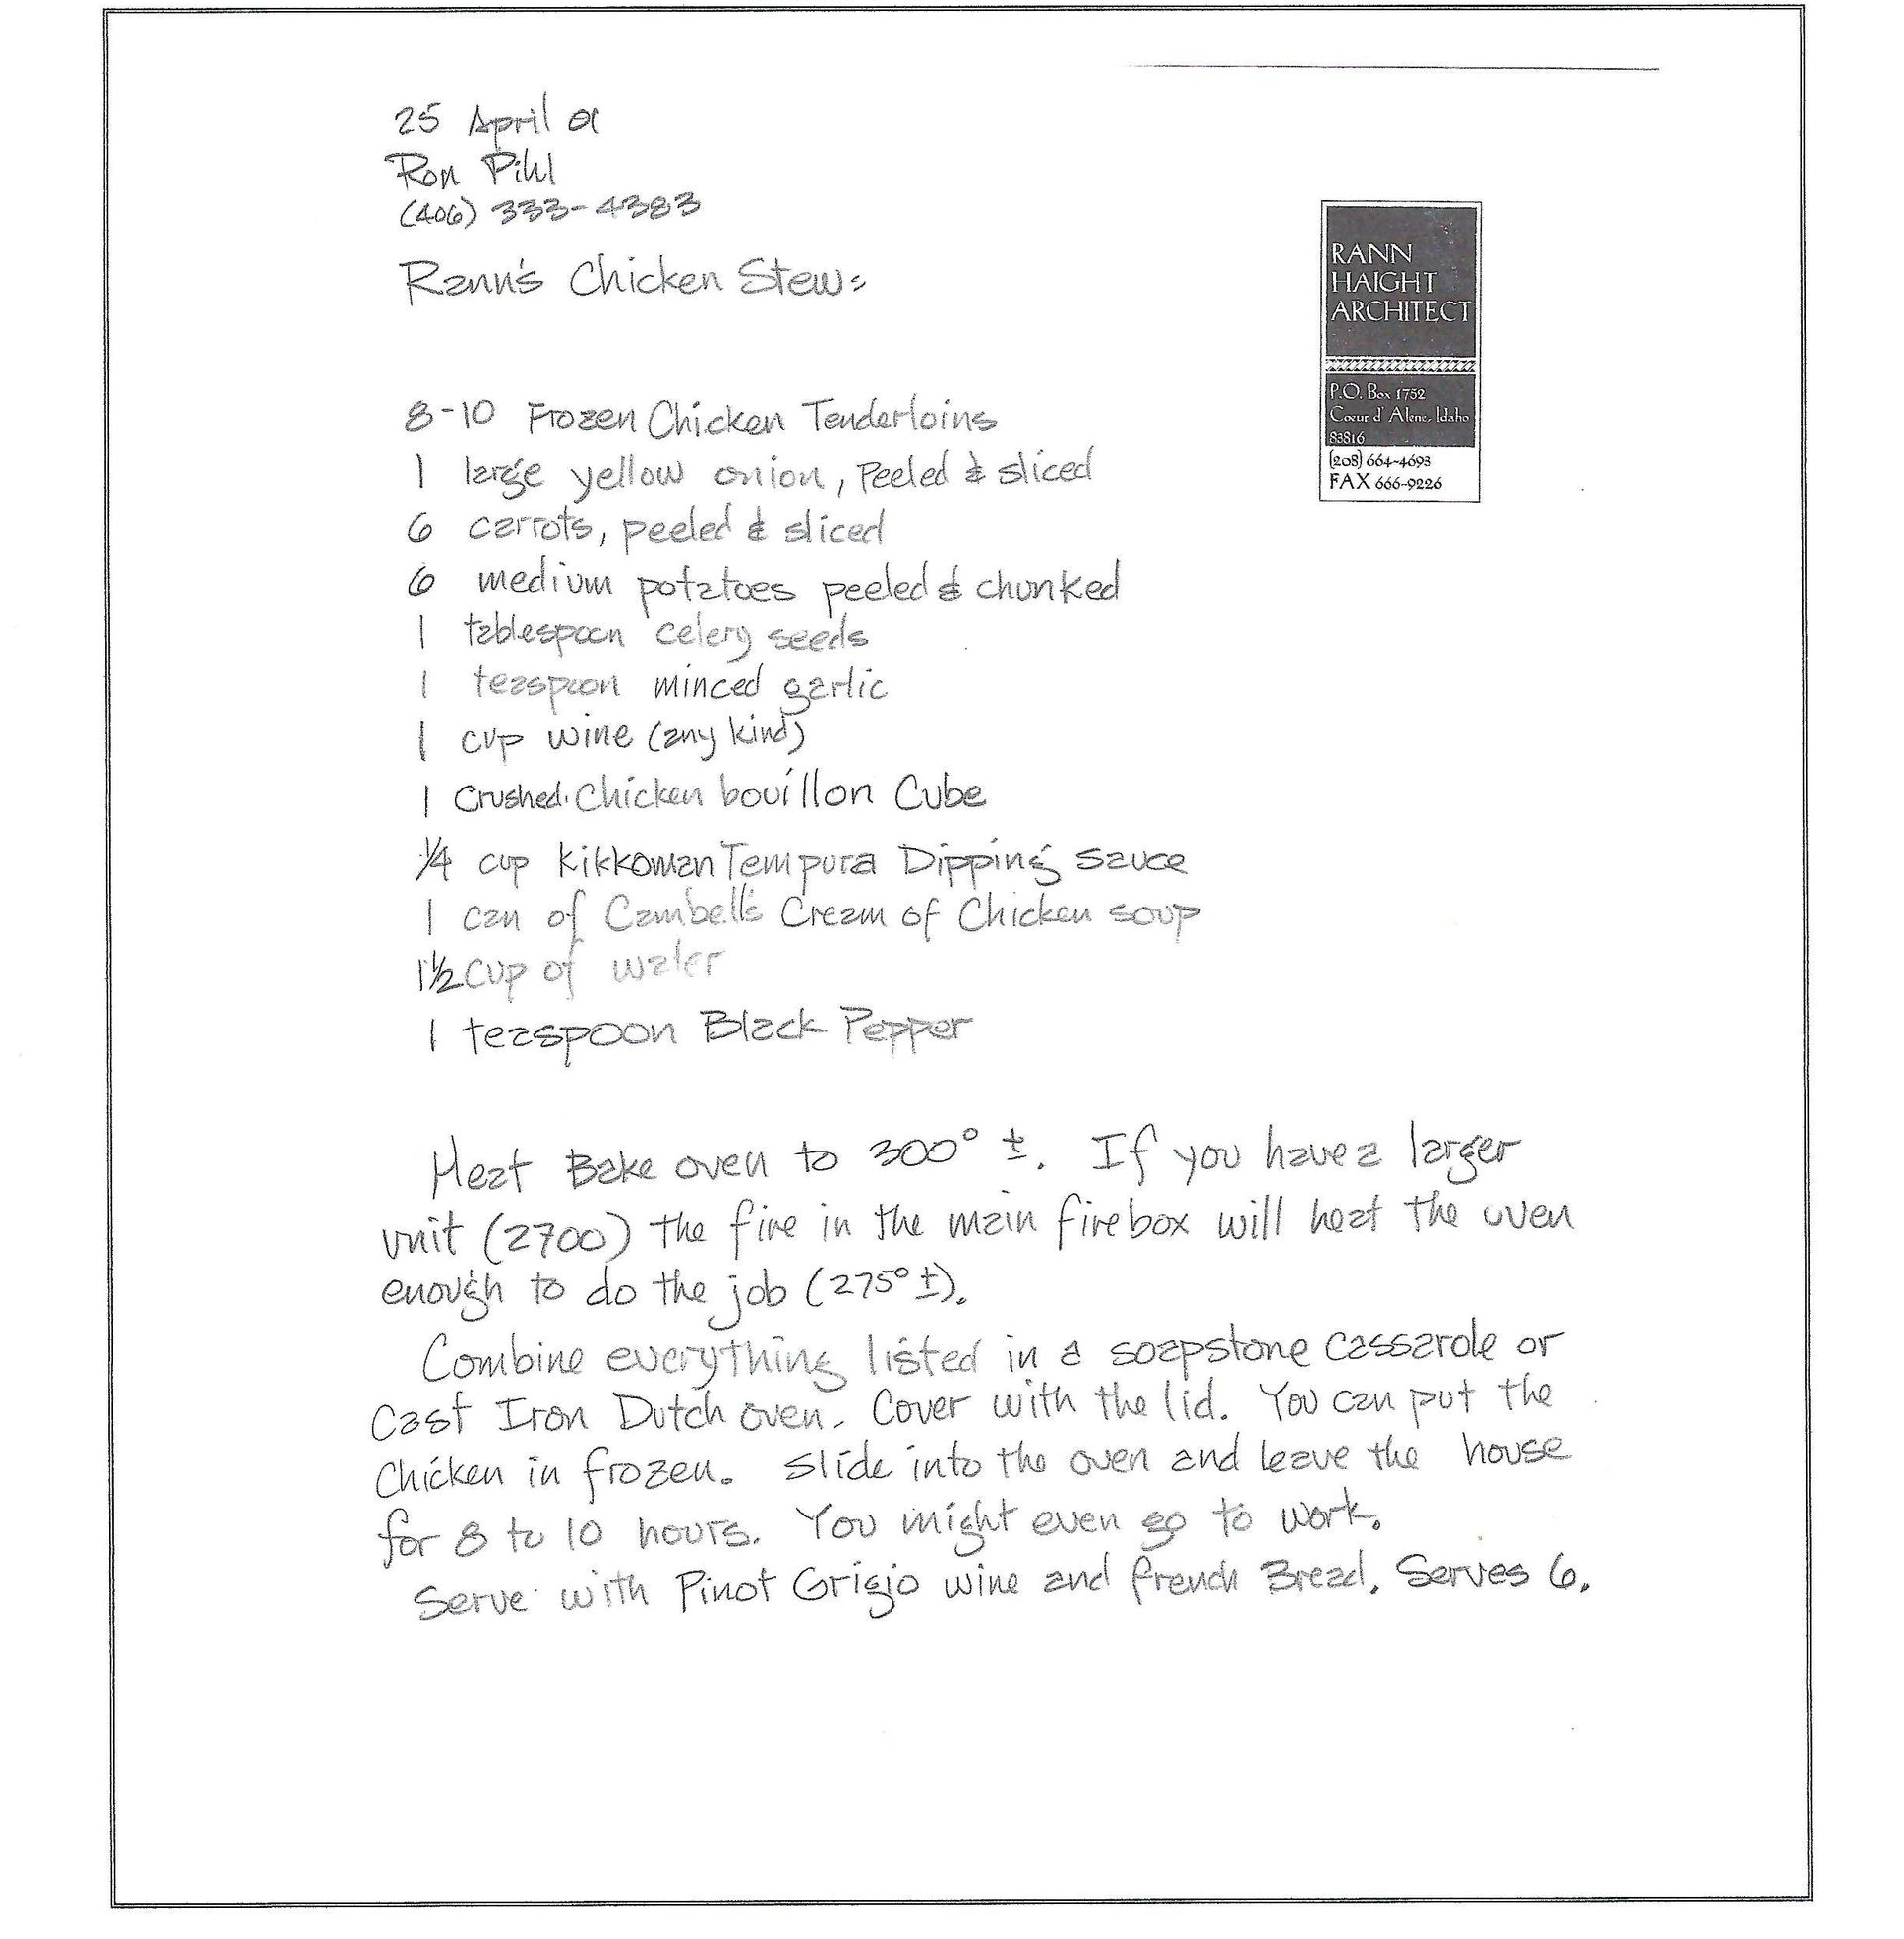 25 April 01
Ron Pihl
(406) 333-4383
Rann's Chicken Stew:
RANN
HAIGHT
ARCHITECT
P.O. Box 1752
Coeur d' Alene, Idaho
83816
(208) 664-4693
FAX 666-9226
8-10 Frozen Chicken Tenderloins
1 large yellow onion, Peeled & sliced
6 carrots, peeled & sliced
6 medium potatoes peeled & chunked
1 tablespoon celery seeds
1 teaspoon minced garlic
1 cup wine (any kind)
1 Crushed Chicken bouillon Cube
1/4 cup Kikkoman Tempura Dipping Sauce
1 can of Cambell's Cream of Chicken soup
1 1/2 cup of water
1 teaspoon Black Pepper
Heat Bake oven to 300° ±. If you have a larger
unit (2700) the fire in the main firebox will heat the oven
enough to do the job (275° ±).
Combine everything listed in a soapstone casserole or
Cast Iron Dutch oven. Cover with the lid. You can put the
Chicken in frozen. Slide into the oven and leave the house
for 8 to 10 hours. You might even go to work.
Serve with Pinot Grigio wine and french Bread. Serves 6.